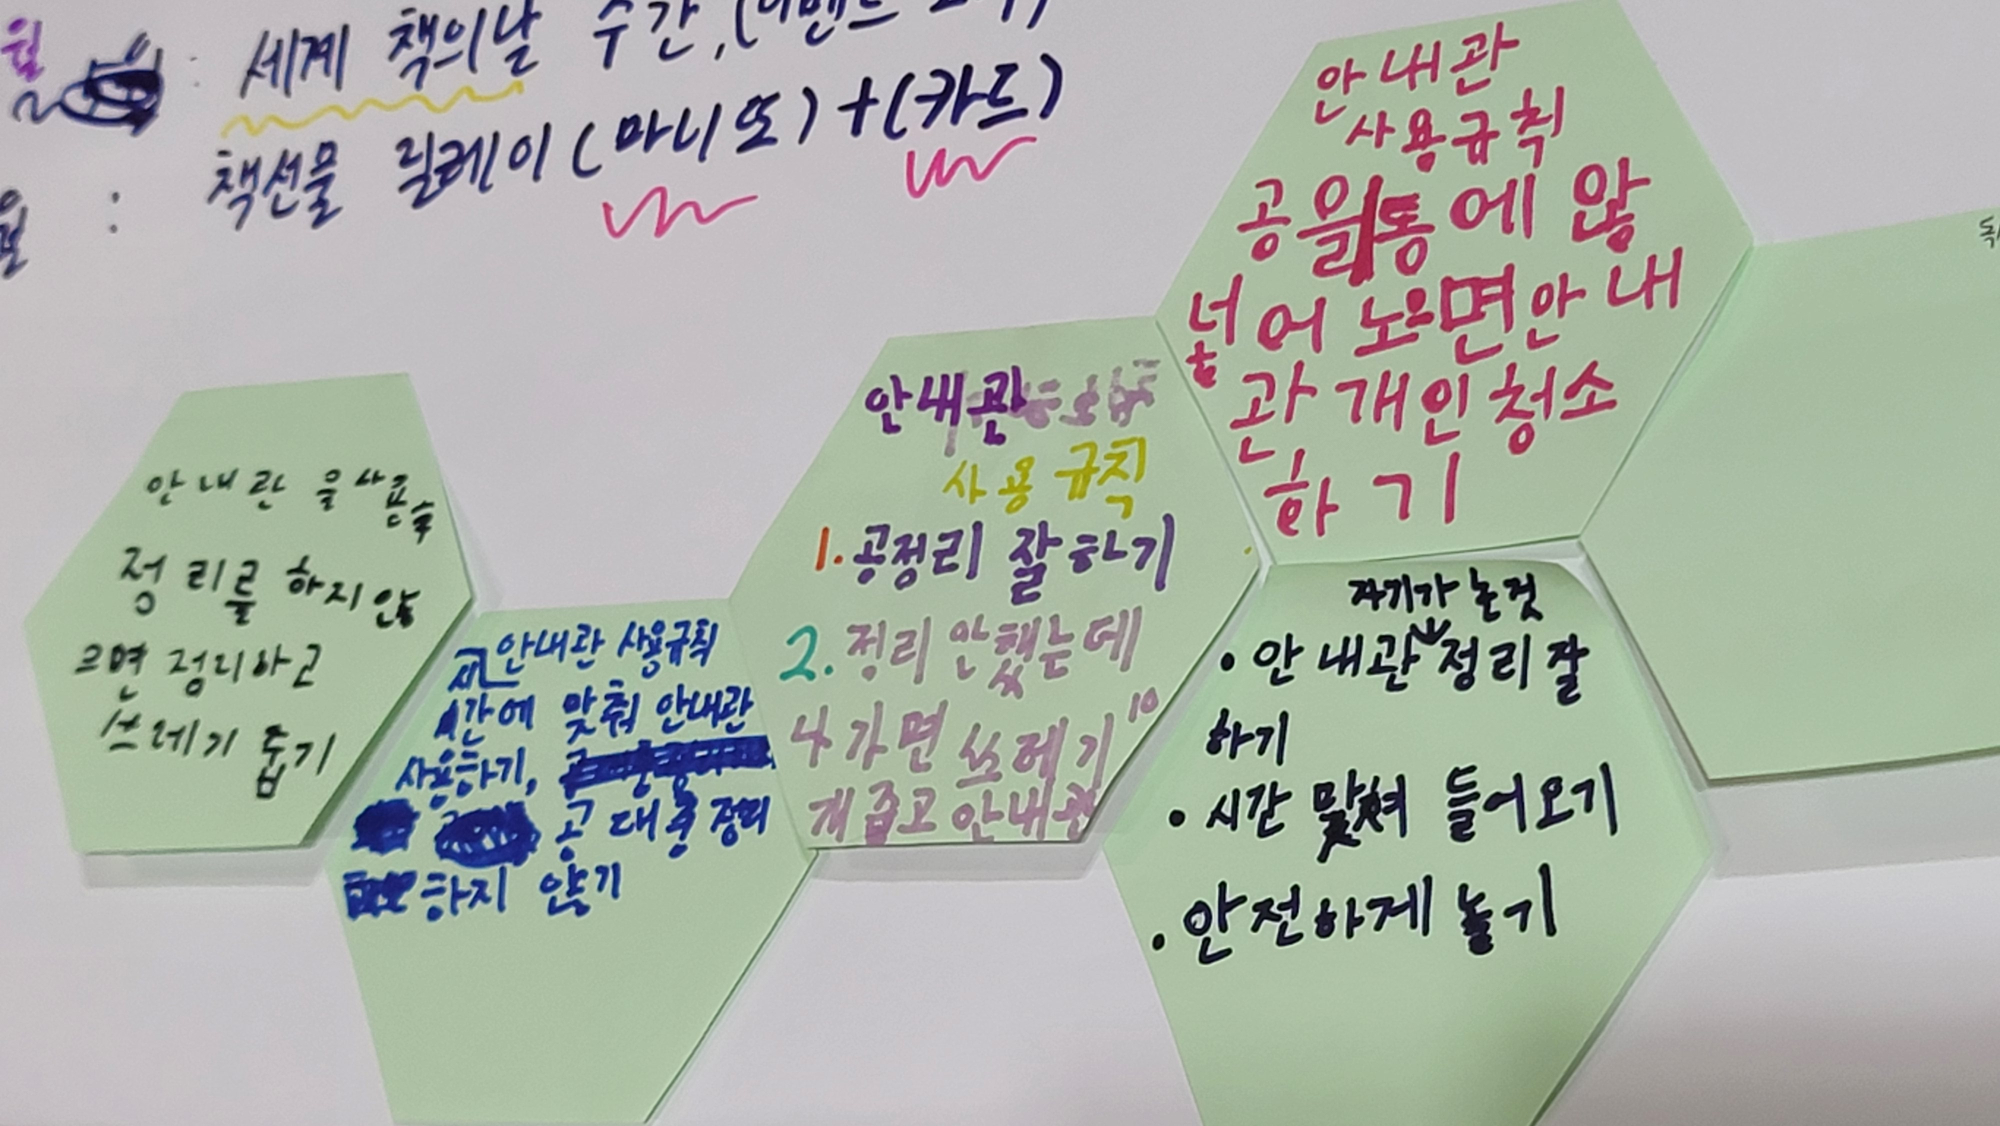 월 : 세계 책의날 수간, (이벤트
책선물 릴레이 (마니또) + (카드)
월 :
안내관
사용규칙
공을 통에 않
넣어 노으면 안내
관 개인청소
하기
안내관
사용 규칙
1. 공정리 잘하기
2. 정리 안했는데
나가면 쓰레기 10
개 줍고 안내관
안내관 을 사용후
정 리를 하지 않
으면 정리하고
쓰레기 줍기
안내관 사용규칙
시간에 맞춰 안내관
사용하기,
공 대충 정리
하지 않기
자기가 논것
• 안내관 정리 잘
하기
• 시간 맞춰 들어오기
• 안전하게 놀기